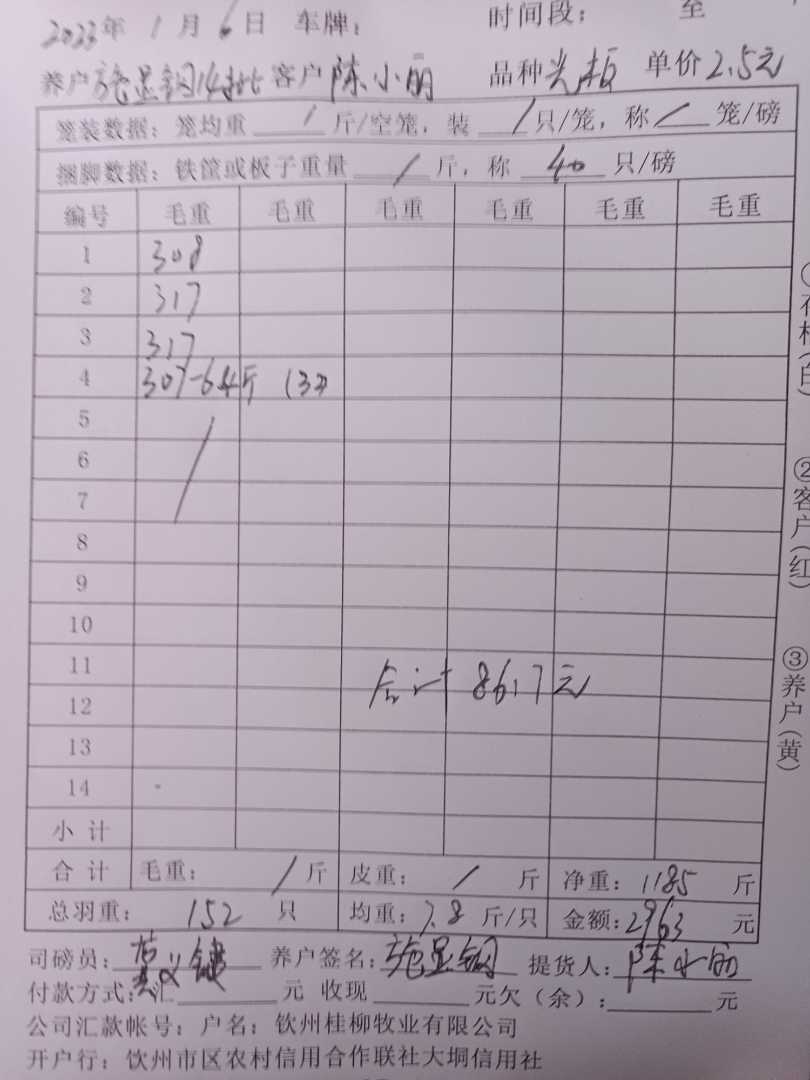 2023年 1月6日 车牌： 时间段： 至
养户施显钢14批 客户陈小丽 品种光板 单价2.5元
笼装数据：笼均重 / 斤/空笼，装 / 只/笼，称 / 笼/磅
捆脚数据：铁筐或板子重量 / 斤，称 40 只/磅
编号 毛重 毛重 毛重 毛重 毛重 毛重
1 308
2 317
3 317
4 307-64斤 13只
5
6
7
8
9
10
11 合计 8617元
12
13
14
小计
合计 毛重： / 斤 皮重： / 斤 净重：1185 斤
总羽重： 152 只 均重：7.8 斤/只 金额：2963 元
司磅员： 养户签名：施显钢 提货人：陈小丽
付款方式：汇 元 收现 元欠（余）： 元
公司汇款帐号：户名：钦州桂柳牧业有限公司
开户行：饮州市区农村信用合作联社大垌信用社
（白）
②客户（红）
③养户（黄）